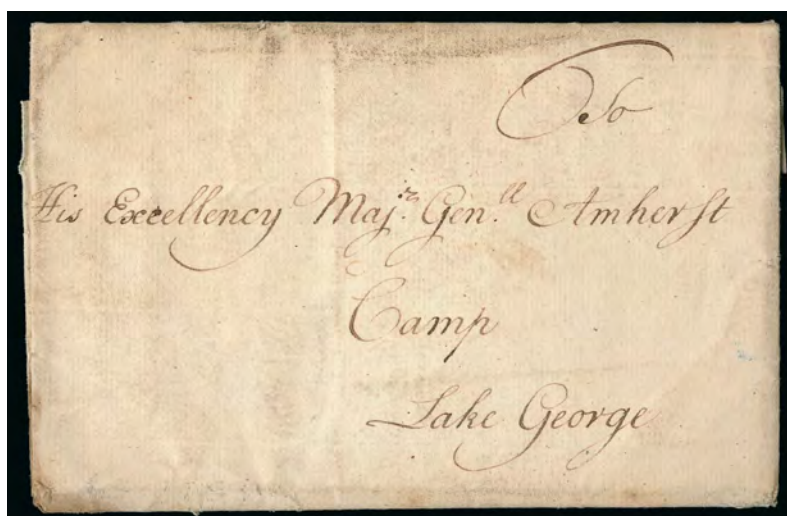 To
His Excellency Maj:r Gen:ll Amherst
Camp
Lake George